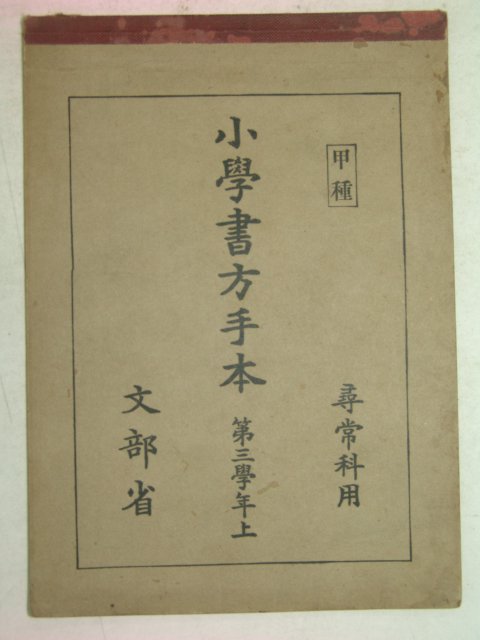 甲種
尋常科用
小學書方手本 第三學年上
文部省